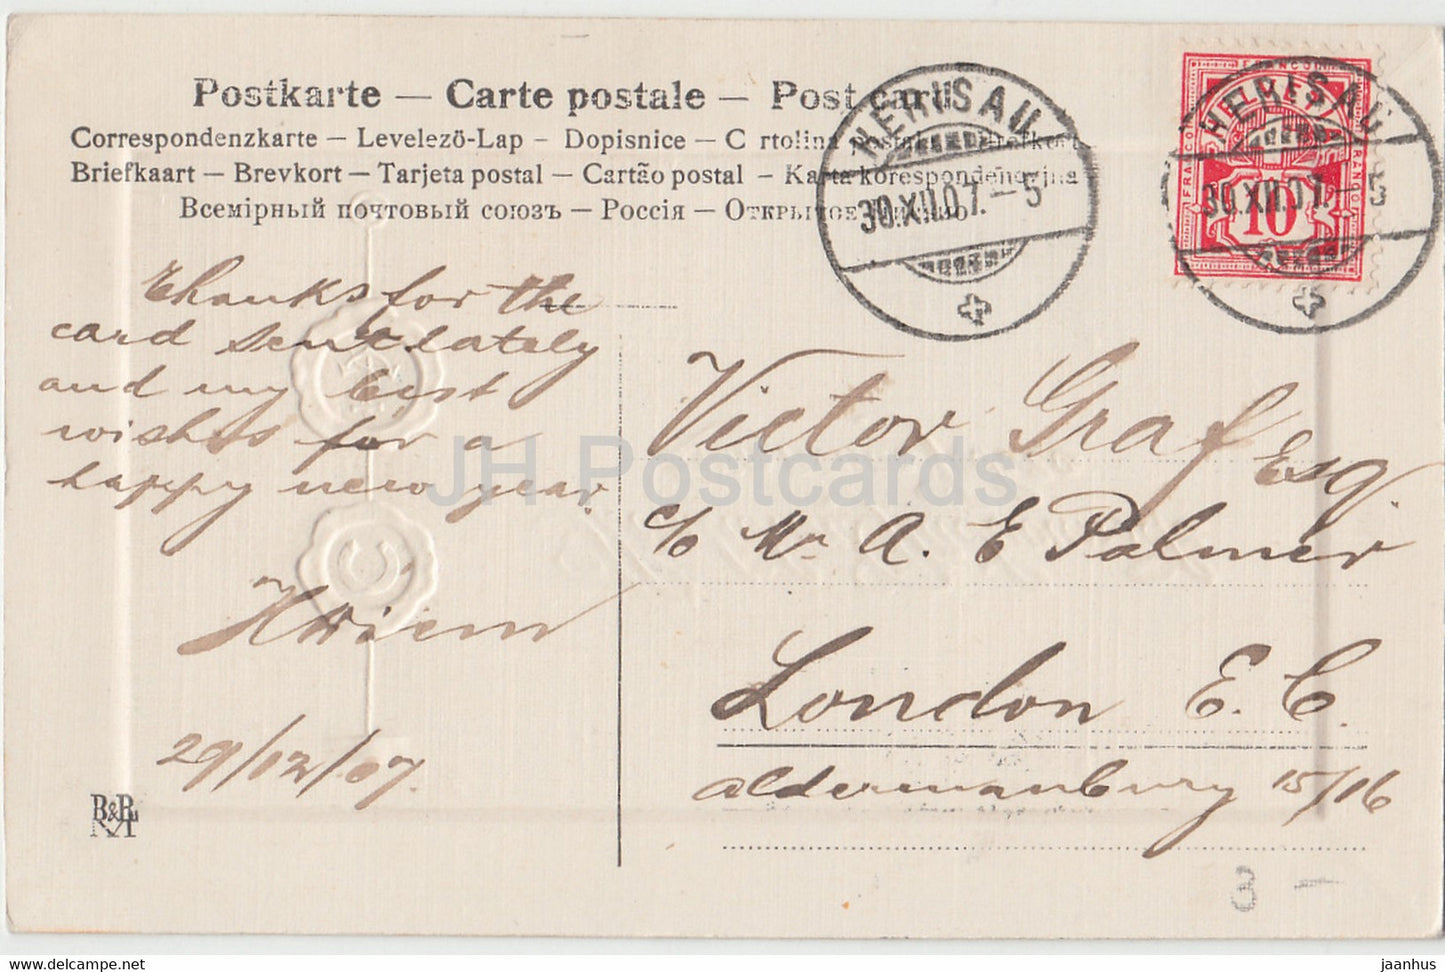 Postkarte — Carte postale — Post card
Correspondenzkarte — Levelezö-Lap — Dopisnice — C rtolina
Briefkaart — Brevkort — Tarjeta postal — Cartão postal — Karta korespondencyjna
Всемірный почтовый союзъ — Россія — Открытое
HERISAU
30.XII.07.—5
HERISAU
30.XII.07.—5
FRANCO
HELVETIA
10
Thanks for the
card sent lately
and my best
wishes for a
happy new year.
29/12/07.
Victor Graf Esq.
c/o Mr A. E Palmer
London E. C.
Aldermanbury 15/16
B&R
3 —
JH Postcards
jaanhus